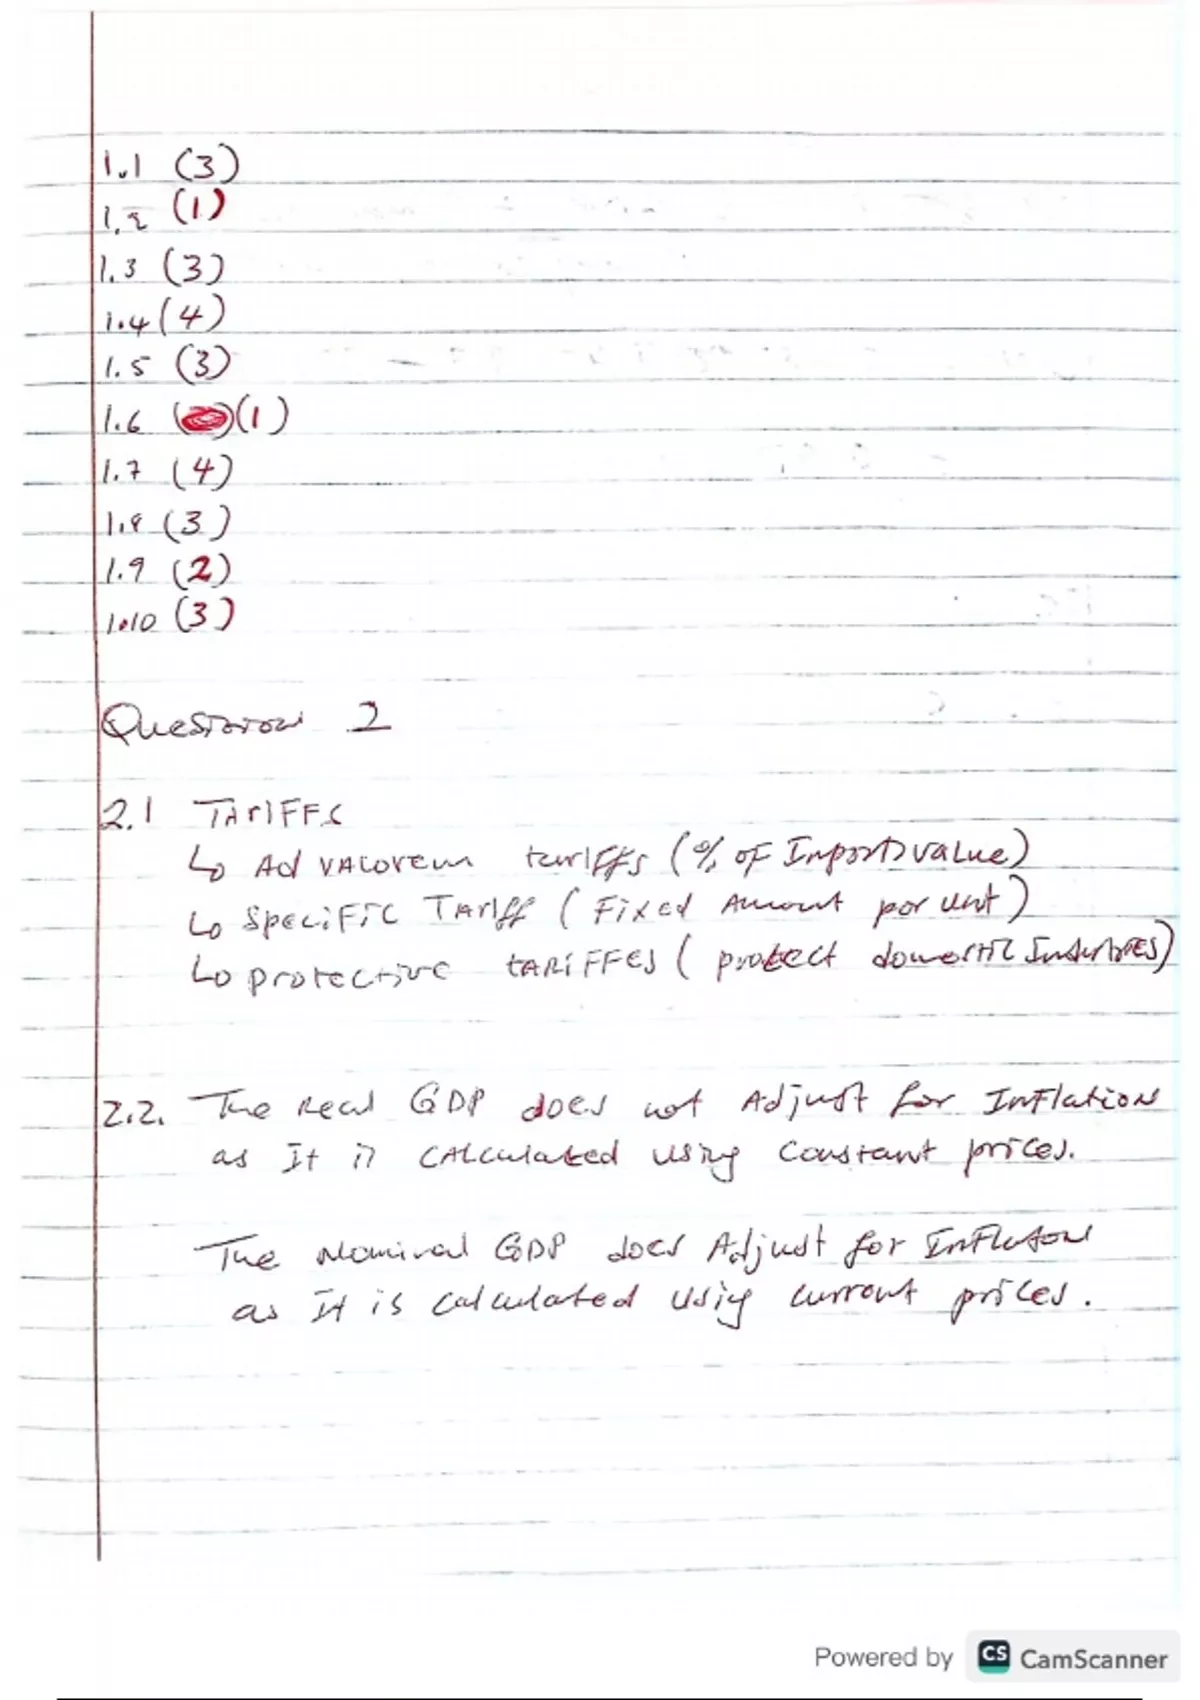 1.1 (3)
1.2 (1)
1.3 (3)
1.4 (4)
1.5 (3)
1.6 (1)
1.7 (4)
1.8 (3)
1.9 (2)
1.10 (3)
Question 2
2.1 TARIFFS
↳ Ad VALOREM tariffs (% of Import value)
↳ Specific Tariff (Fixed Amount per unit)
↳ protective TARIFFES (protect domestic Industries)
2.2. The Real GDP does not Adjust for Inflation
as It is CALCULATED using Constant prices.
The Nominal GDP does Adjust for Inflation
as It is calculated using current prices.
Powered by CS CamScanner